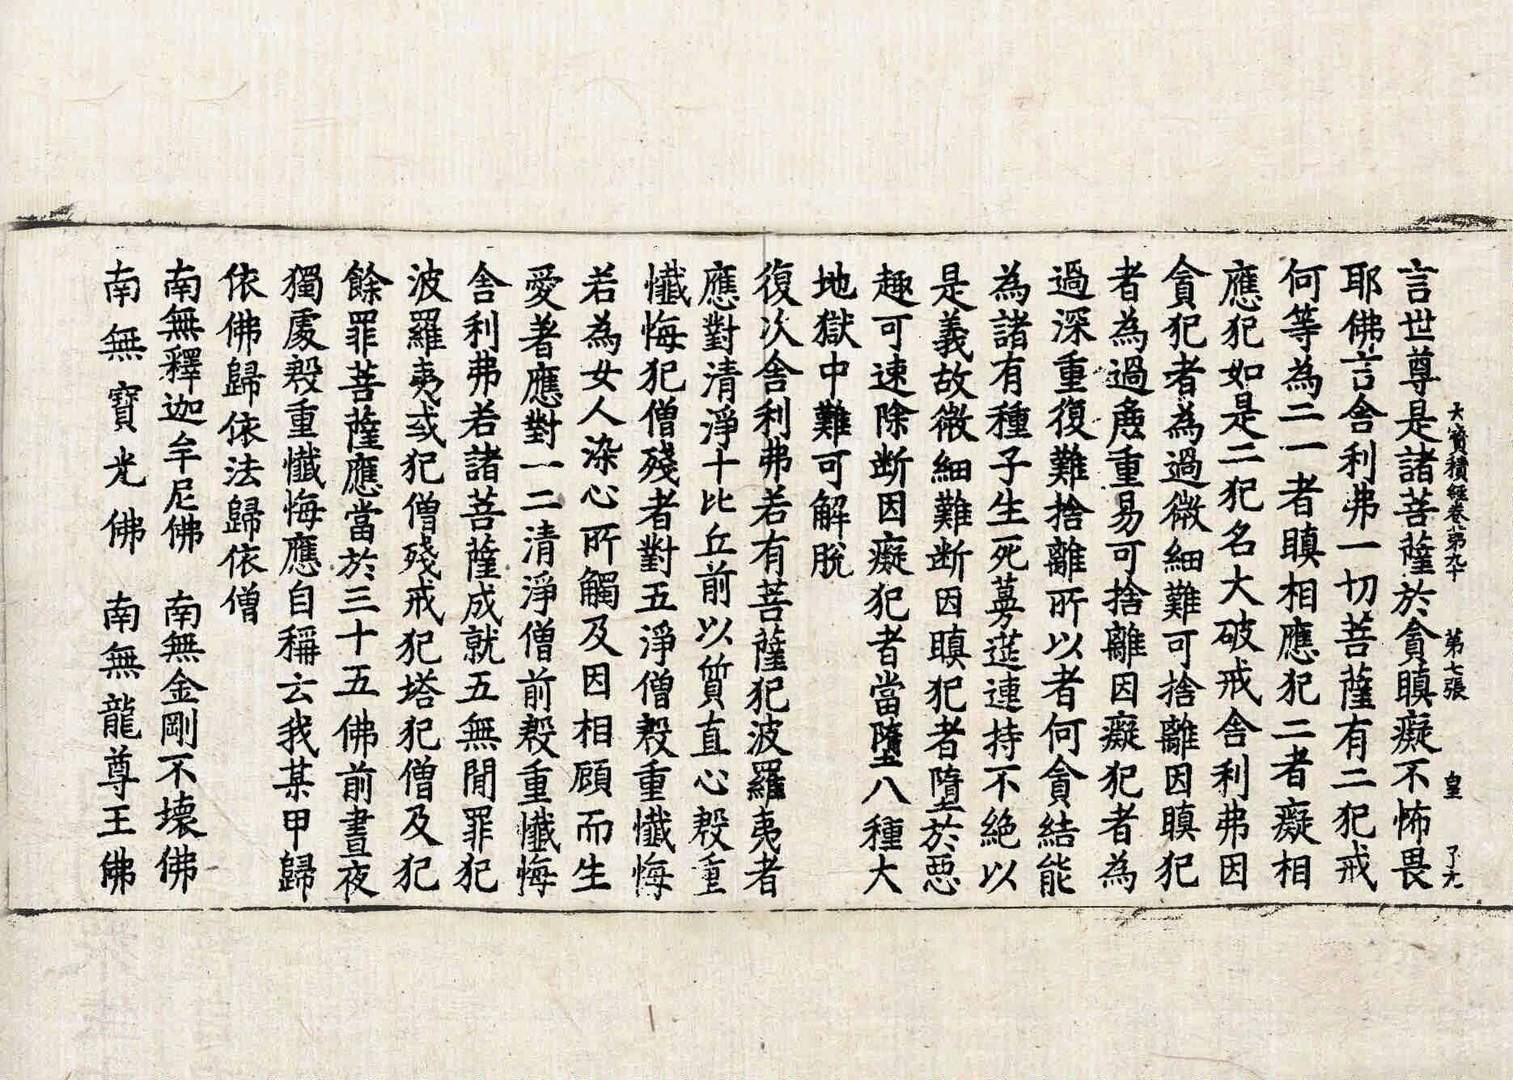 大寶積經卷第九十 第七張 皇 了元
言世尊是諸菩薩於貪瞋癡不怖畏
耶佛言舍利弗一切菩薩有二犯戒
何等為二一者瞋相應犯二者癡相
應犯如是二犯名大破戒舍利弗因
貪犯者為過微細難可捨離因瞋犯
者為過麁重易可捨離因癡犯者為
過深重復難捨離所以者何貪結能
為諸有種子生死蔓莚連持不絶以
是義故微細難断因瞋犯者墮於惡
趣可速除断因癡犯者當墮八種大
地獄中難可解脫
復次舍利弗若有菩薩犯波羅夷者
應對清淨十比丘前以質直心慇重
懺悔犯僧殘者對五淨僧慇重懺悔
若為女人染心所觸及因相顧而生
愛著應對一二清淨僧前慇重懺悔
舍利弗若諸菩薩成就五無間罪犯
波羅夷或犯僧殘戒犯塔犯僧及犯
餘罪菩薩應當於三十五佛前晝夜
獨處慇重懺悔應自稱云我某甲歸
依佛歸依法歸依僧
南無釋迦牟尼佛 南無金剛不壊佛
南無寶光佛 南無龍尊王佛